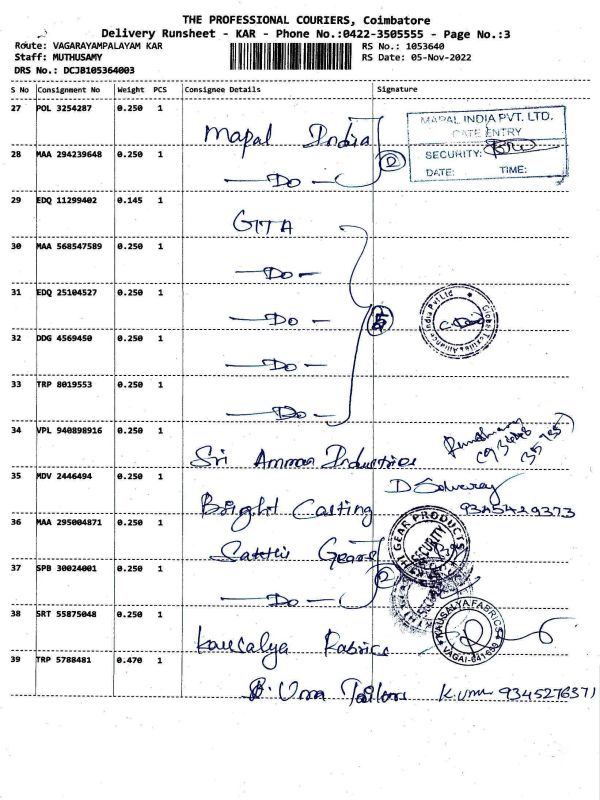 THE PROFESSIONAL COURIERS, Coimbatore
Delivery Runsheet - KAR - Phone No.:0422-3505555 - Page No.:3
Route: VAGARAYAMPALAYAM KAR
RS No.: 1053640
Staff: MUTHUSAMY
RS Date: 05-Nov-2022
DRS No.: DCJB105364003
S No Consignment No Weight PCS Consignee Details Signature
27 POL 3254287 0.250 1
Mapal India
MAPAL INDIA PVT. LTD.
GATE ENTRY
SECURITY:
DATE: TIME:
28 MAA 294239648 0.250 1
Do
29 EDQ 11299402 0.145 1
GITA
30 MAA 568547589 0.250 1
Do
31 EDQ 25104527 0.250 1
Do
Global Textile Alliance India Pvt Ltd
32 DDG 4569450 0.250 1
Do
33 TRP 8019553 0.250 1
Do
34 VPL 940898916 0.250 1
Sri Amman Industries
35 MDV 2446494 0.250 1
Bright Casting
9345429373
36 MAA 295004871 0.250 1
Sakthi Gear
SAKTHI GEAR PRODUCTS
SECURITY
37 SPB 30024001 0.250 1
Do
38 SRT 55875048 0.250 1
Kausalya Fabrics
KAUSALYA FABRICS
VAGAI-641
39 TRP 5788481 0.470 1
B. Uma Tailors K.Uma 9345276371